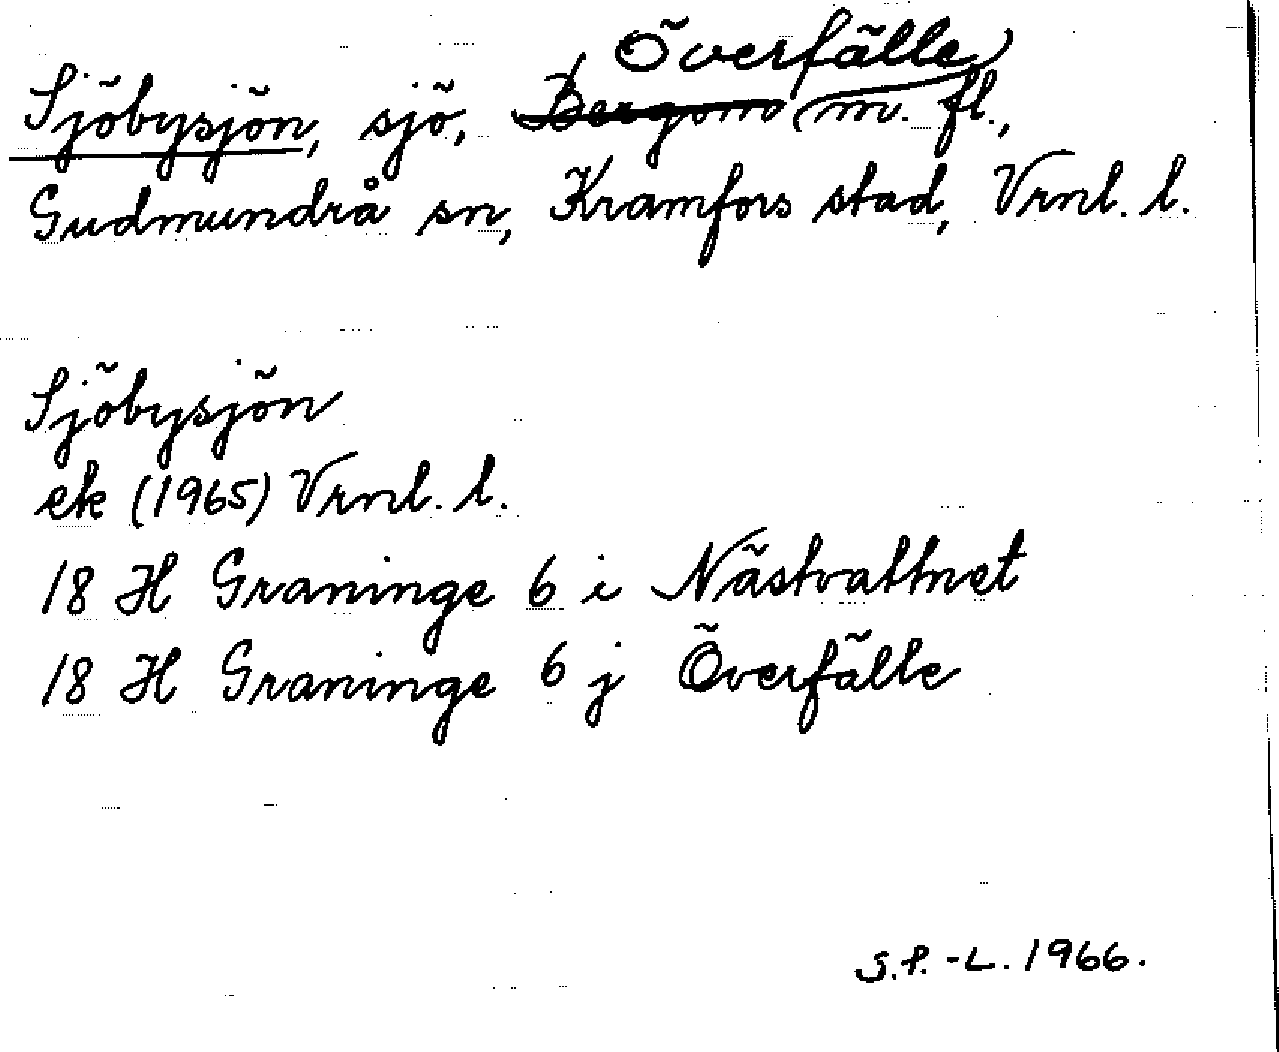 Överfälle
Sjöbysjön, sjö, Bergom m. fl.,
Gudmundrå sn, Kramfors stad, Vrnl. l.
Sjöbysjön
ek (1965) Vrnl. l.
18 H Graninge 6 i Nästvattnet
18 H Graninge 6 j Överfälle
S.P.-L. 1966.